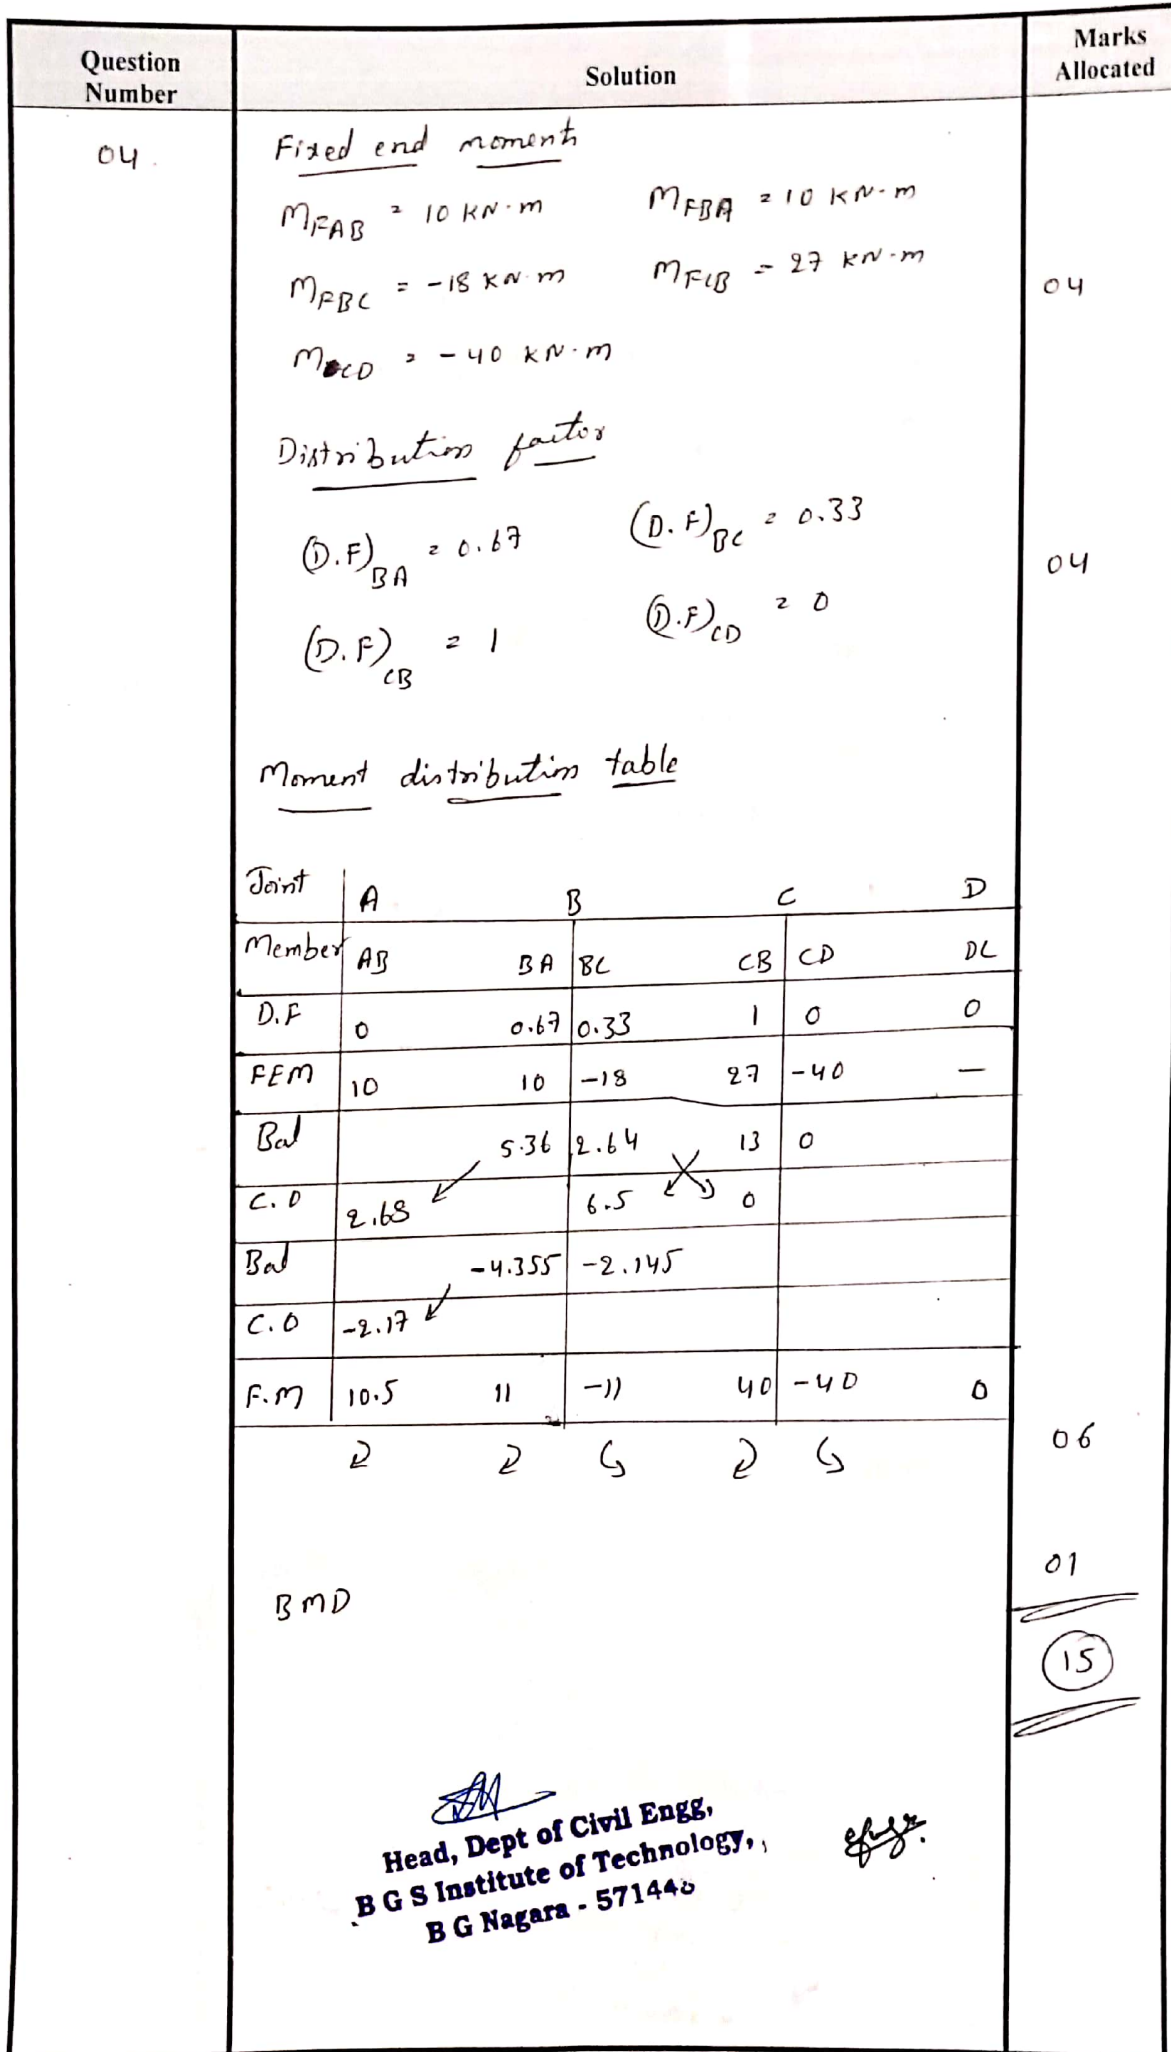 Question Number
Solution
Marks Allocated
04.
Fixed end moments
MFAB = 10 KN-m MFBA = 10 KN-m
MFBC = -18 KN-m MFCB = 27 KN-m
04
MCD = -40 KN-m
Distribution factor
(D.F)BA = 0.67 (D.F)BC = 0.33
04
(D.F)CB = 1 (D.F)CD = 0
Moment distribution table
Joint A B C D
Member AB BA BC CB CD DC
D.F 0 0.67 0.33 1 0 0
FEM 10 10 -18 27 -40 —
Bal 5.36 2.64 13 0
C.O 2.68 6.5 0
Bal -4.355 -2.145
C.O -2.17
F.M 10.5 11 -11 40 -40 0
06
01
BMD
15
Head, Dept of Civil Engg,
B G S Institute of Technology,
B G Nagara - 571448